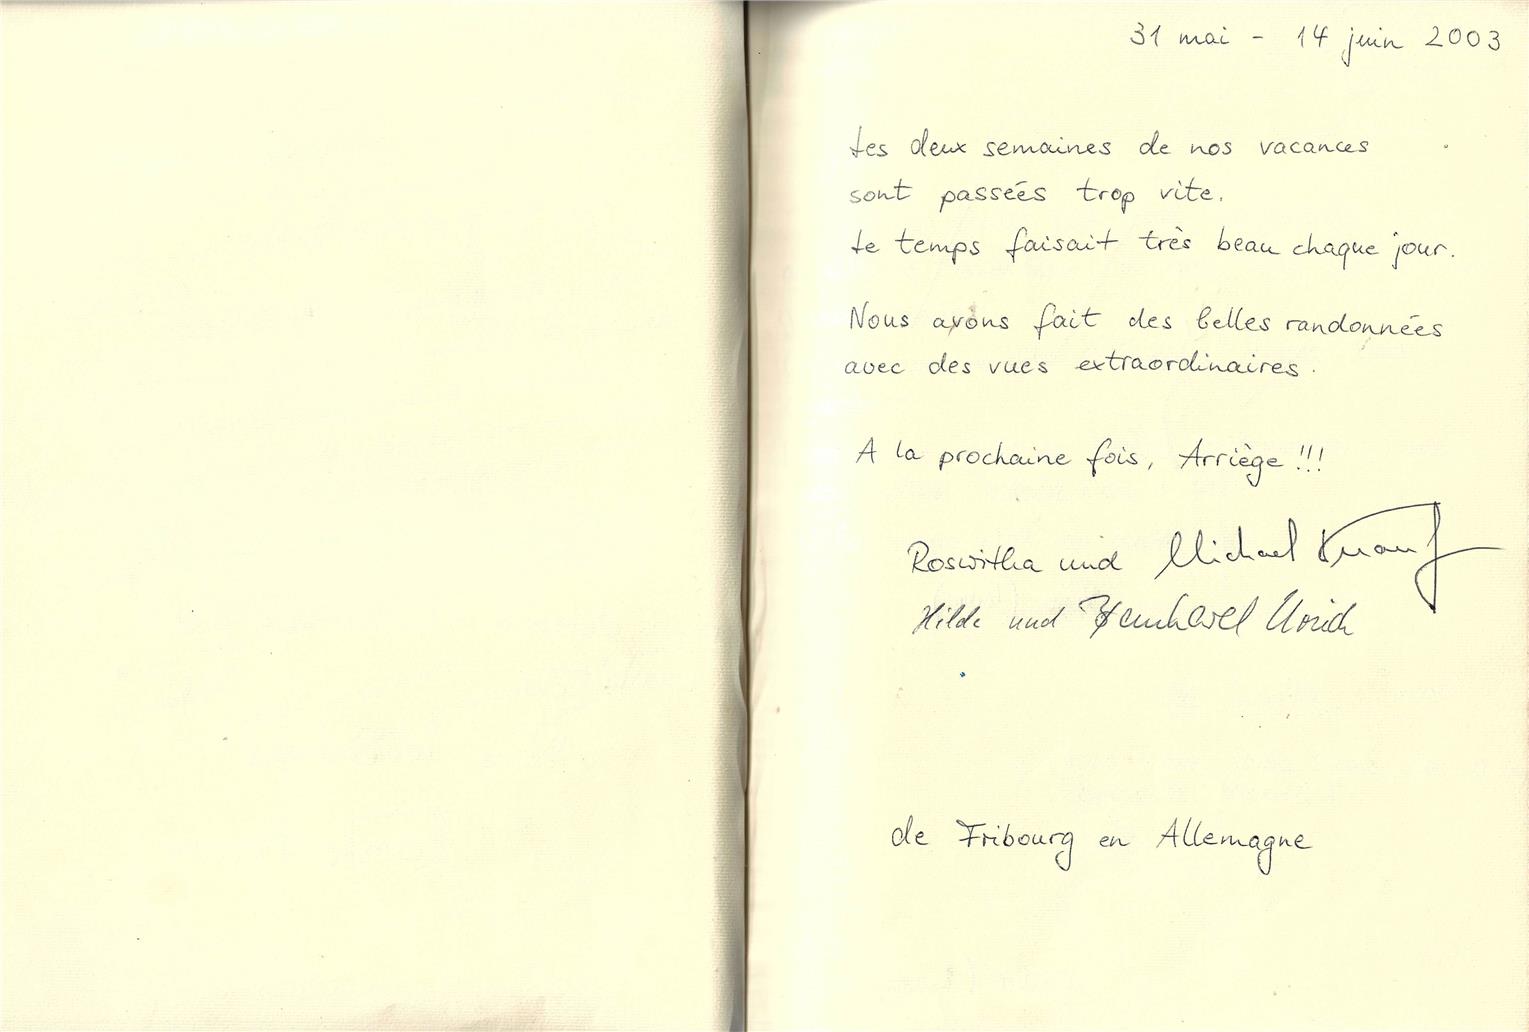 31 mai - 14 juin 2003
Les deux semaines de nos vacances
sont passeés trop vite.
Le temps faisait très beau chaque jour.
Nous avons fait des belles randonnées
avec des vues extraordinaires.
A la prochaine fois, Arriège !!!
Roswitha und Michael Knauf
Hilde und
de Fribourg en Allemagne